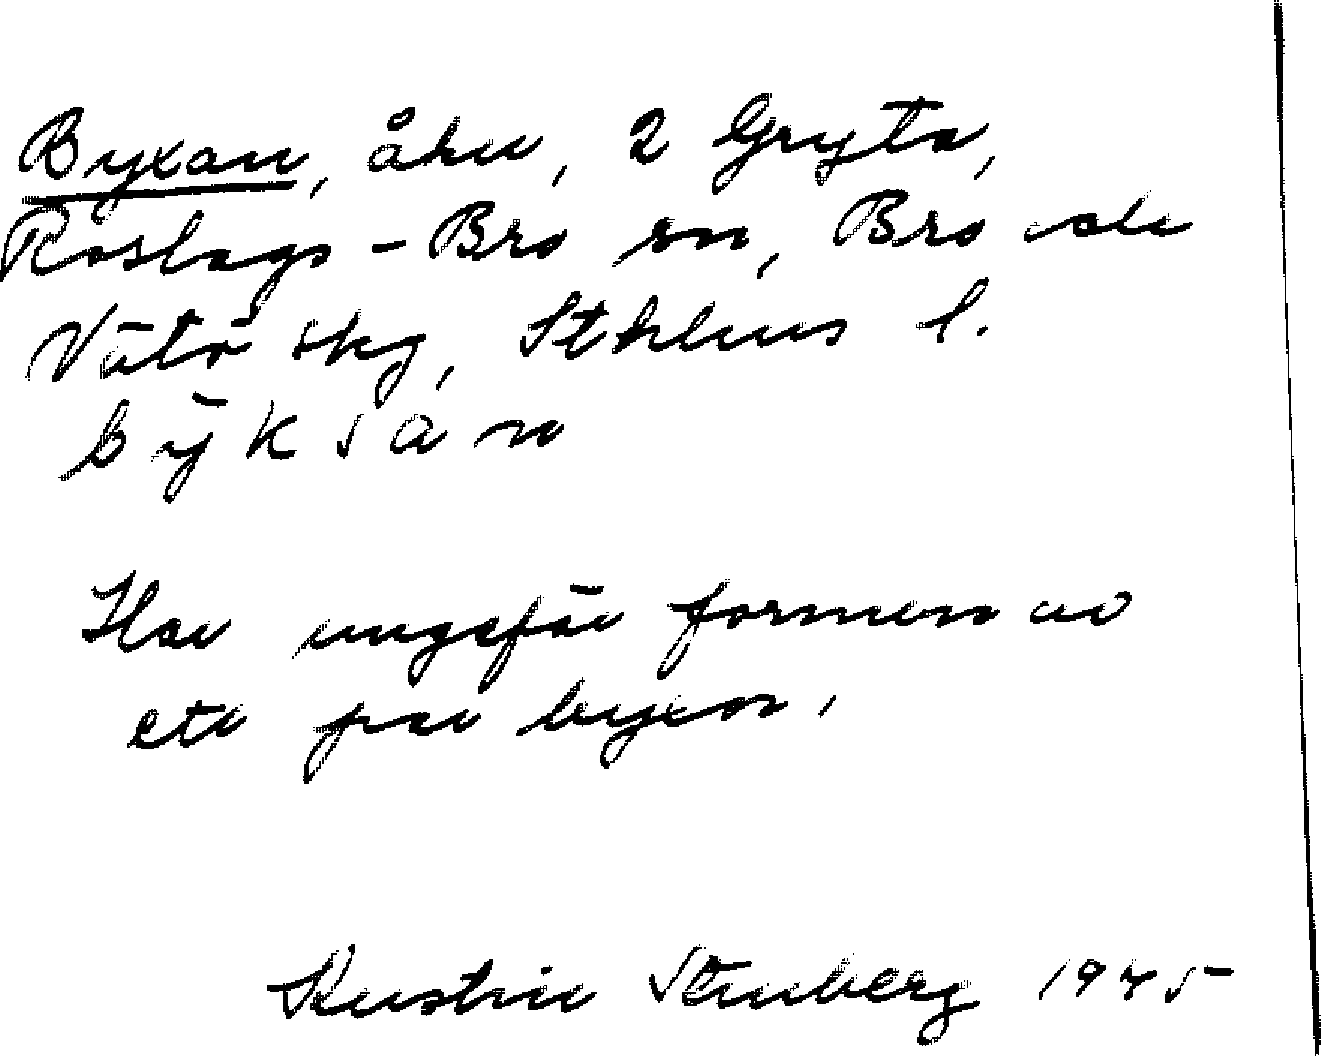 Byxan, åker, 2 Gryta,
Roslags-Bro sn, Bro och
Vätö skg, Sthlms l.
bȳksan
Har ungefär formen av
ett par byxor.
Kerstin Stenberg 1945